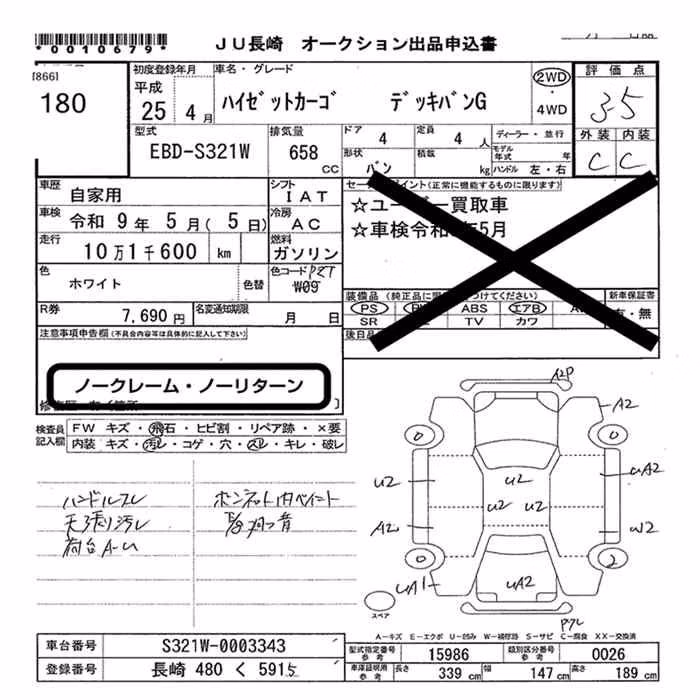 *0010679*
JU長崎 オークション出品申込書
[866]
180
初度登録年月
平成
25 4 月
車名・グレード
ハイゼットカーゴ デッキバンG
2WD
・
4WD
評価点
3.5
外装 内装
C C
型式
EBD-S321W
排気量
658
CC
ドア
4
定員
4 人
形状
バン
積載
kg
ディーラー・並行
モデル年式 年
ハンドル 左・右
車歴
自家用
シフト
IAT
車検
令和 9 年 5 月( 5 日)
冷房
AC
走行
10万1千600 km
燃料
ガソリン
色
ホワイト
色替
色コード
W09
R券
7,690 円
名変通知期限
月 日
セールスポイント(正常に機能するものに限ります)
☆ユーザー買取車
☆車検令和 年5月
装備品
新車保証書
PS ABS エアB
SR TV カワ
有・無
後日品
注意事項申告欄(不具合内容等は具体的に記入して下さい)
ノークレーム・ノーリターン
検査員
記入欄
FW キズ・飛石・ヒビ割・リペア跡・×要
内装 キズ・汚レ・コゲ・穴・スレ・キレ・破レ
ハンドルスレ
天張り汚レ
荷台A-U
ボンネット内ペイント
A2P
A2
0 0
U2 U2 UA2
U2 U2
A2 W2
0 2
UA1 UA2
スペア
A-キズ E-エクボ U-凹み W-補修跡 S-サビ C-腐食 XX-交換済
車台番号
S321W-0003343
登録番号
長崎 480 く 5915
型式指定番号
参考
15986
類別区分番号
参考
0026
車庫証明用
参考
長さ 339 cm 幅 147 cm 高さ 189 cm